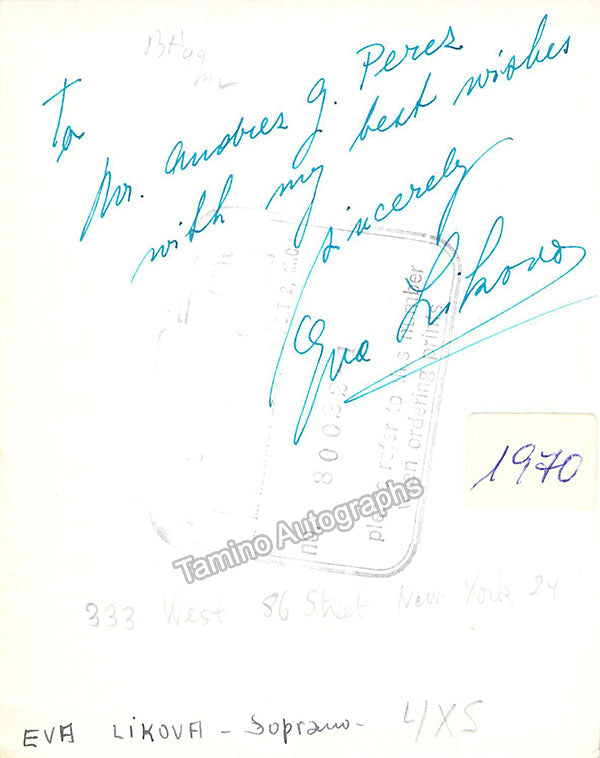 To
Mr. Andres G. Perez
with my best wishes
sincerely
Eva Likova
please refer to this number
when ordering prints
1970
Tamino Autographs
333 West 86 Street New York 24
EVA LIKOVA - Soprano -
4/XS